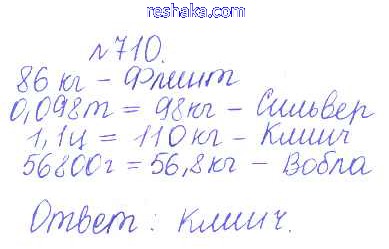 reshaka.com
№710.
86 кг - Флинт
0,098т = 98кг - Сильвер
1,1ц = 110 кг - Клич
56800г = 56,8кг - Вобла
Ответ: Клич.